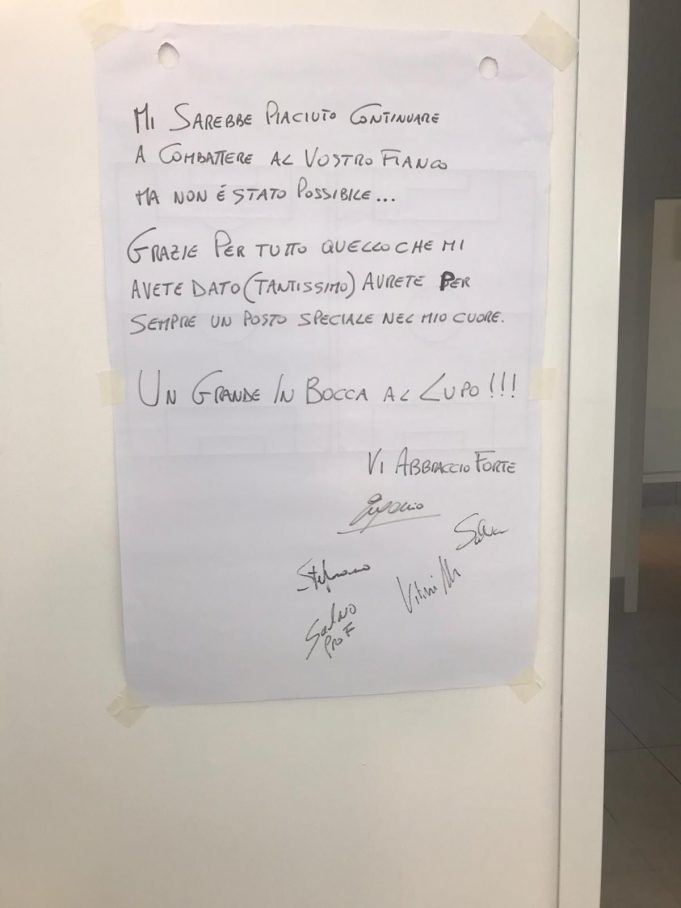 MI SAREBBE PIACIUTO CONTINUARE
A COMBATTERE AL VOSTRO FIANCO
MA NON É STATO POSSIBILE...
GRAZIE PER TUTTO QUELLO CHE MI
AVETE DATO (TANTISSIMO) AVRETE PER
SEMPRE UN POSTO SPECIALE NEL MIO CUORE.
UN GRANDE IN BOCCA AL LUPO!!!
VI ABBRACCIO FORTE
Stefano
PROF